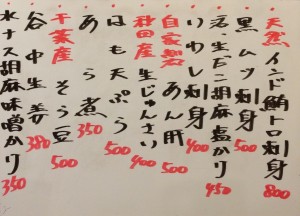 天然インド鮪トロ刺身 800
黒ムツ刺身 500
活〆生だこ胡麻塩かり 450
いわし刺身 400
自家製あん肝 500
秋田産生じゅんさい 400
はも天ぷら 500
あら煮 350
千葉産そら豆 500
谷中生姜 380
水ナス胡麻味噌かり 350